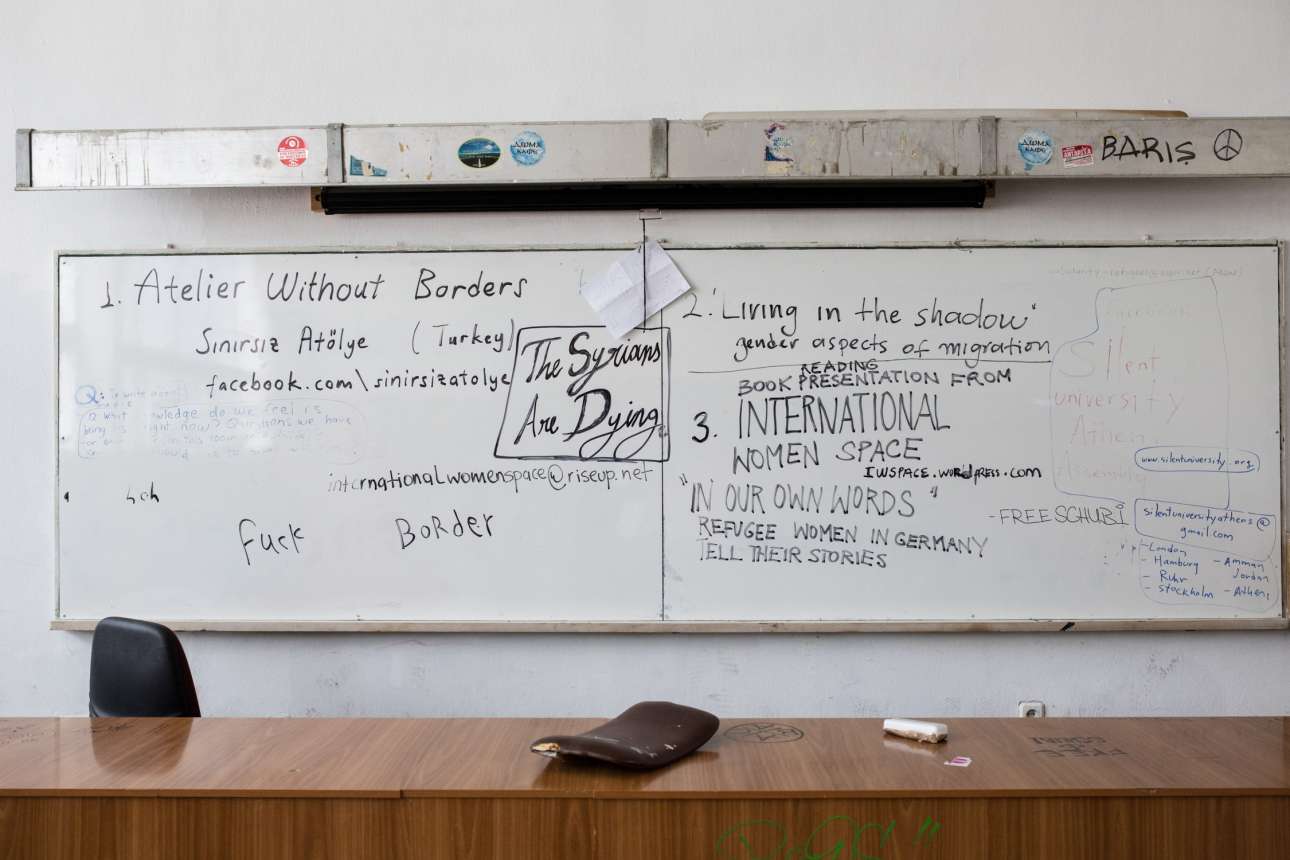 ΔΩΜΑ
ΚΑΦΕ
ΔΩΜΑ
ΚΑΦΕ
ΑΝΤΑΡΣΥΑ
BARIŞ
1. Atelier Without Borders
Sınırsız Atölye (Turkey)
facebook.com\sinirsizatolye
The Syrians
Are Dying
internationalwomenspace@riseup.net
Fuck Border
2. "Living in the shadow"
gender aspects of migration
READING
BOOK PRESENTATION FROM
3. INTERNATIONAL
WOMEN SPACE
IWSPACE.WORDPRESS.COM
"IN OUR OWN WORDS"
REFUGEE WOMEN IN GERMANY
TELL THEIR STORIES
- FREE SCHUBI
facebook
Silent
university
Athen
Assembly
www.silentuniversity.org
silentuniversityathens@
gmail.com
- London
- Hamburg - Amman
- Ruhr Jordan
- Stockholm - Athens
Q:
what knowledge do we feel is
right now? Questions we have